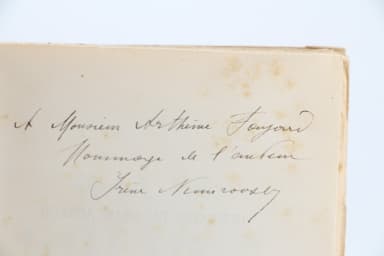 A Monsieur Arthème Fayard
Hommage de l'auteur
Irène Nemirovsky